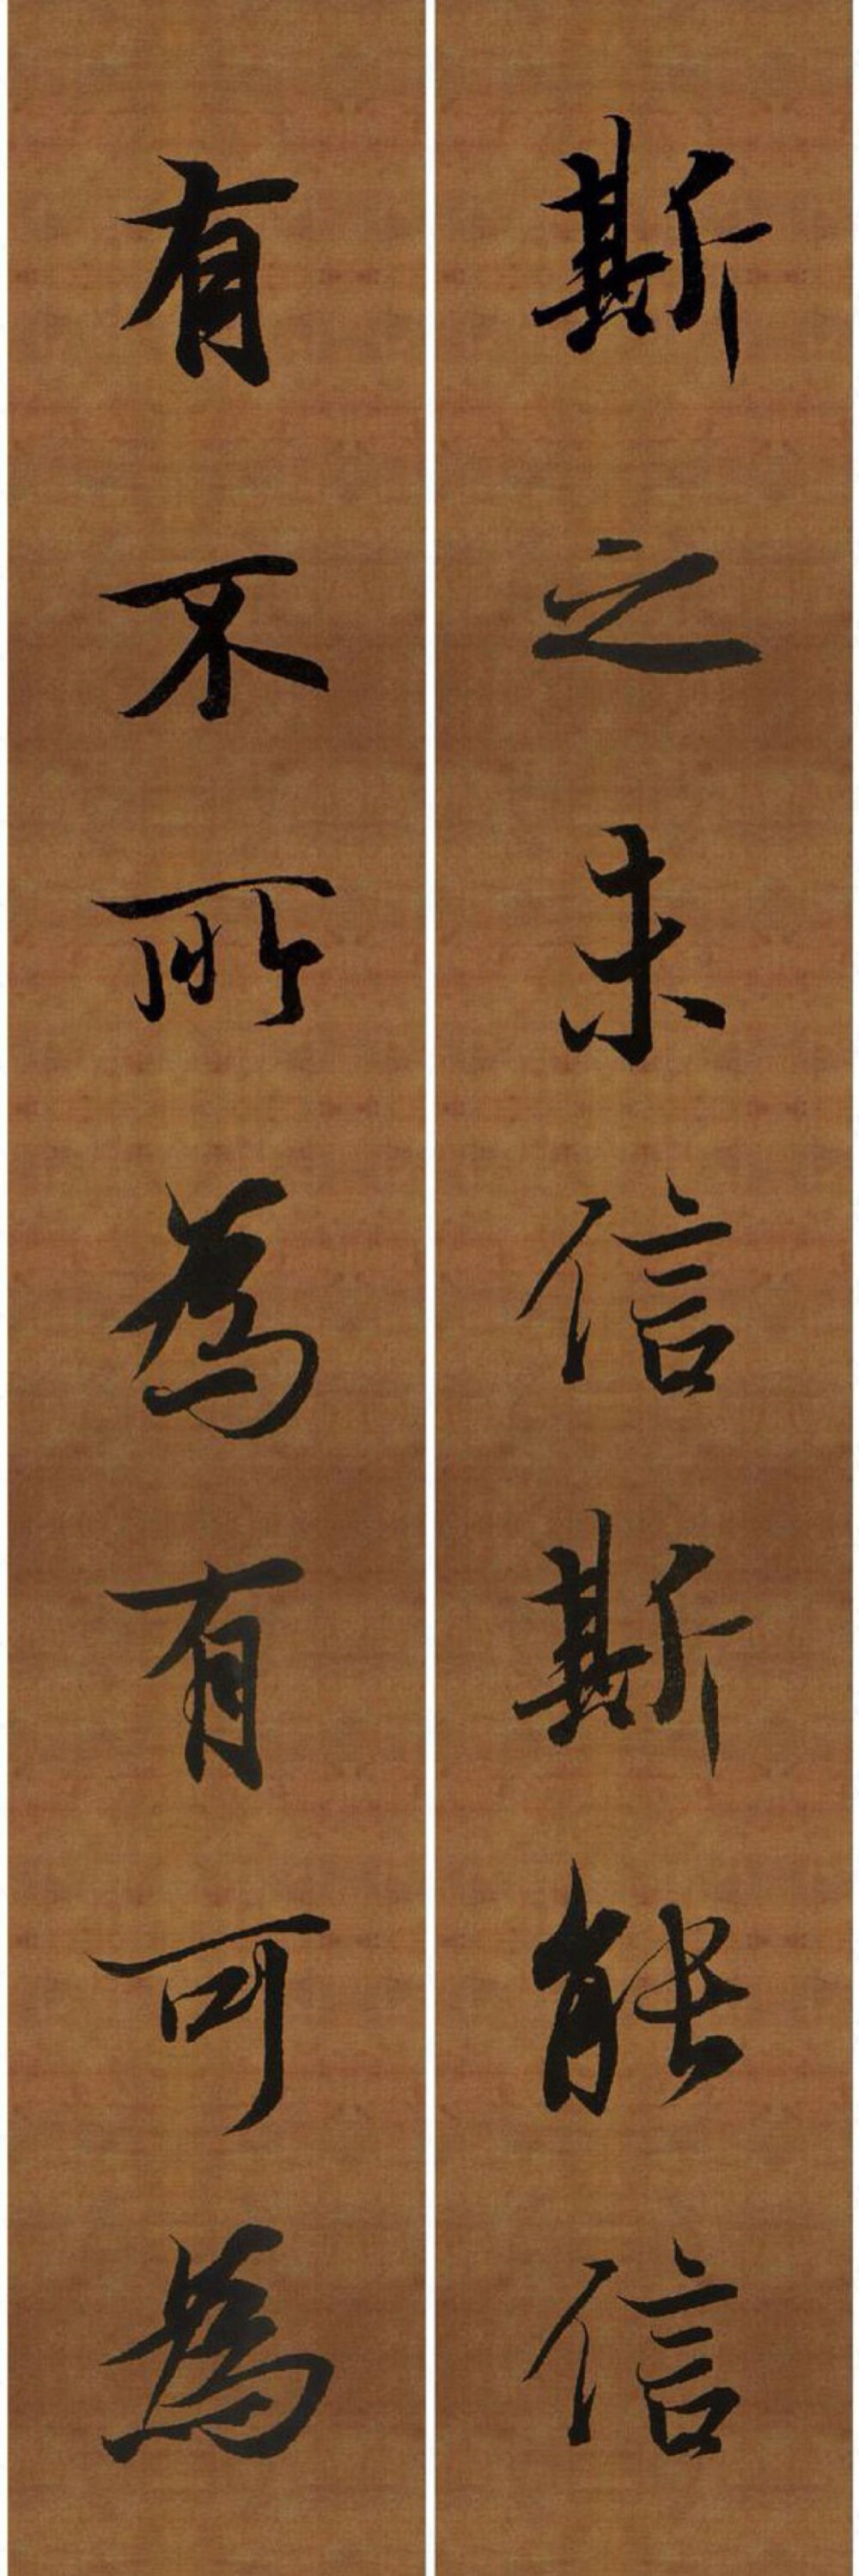 斯之未信斯能信
有不所為有可為